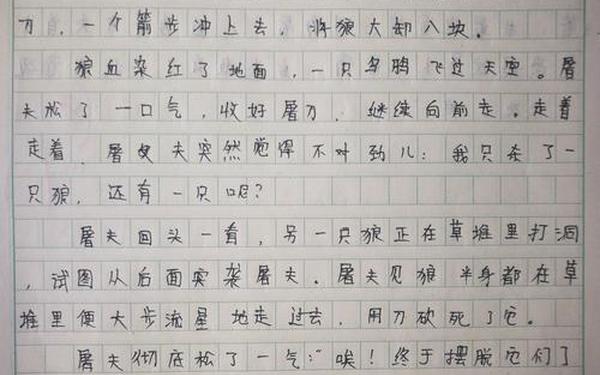 刀，一个箭步冲上去，将狼大卸八块。
狼血染红了地面，一只乌鸦飞过天空。屠
夫松了一口气，收好屠刀，继续向前走。走着
走着，屠夫突然觉得不对劲儿：我只杀了一
只狼，还有一只呢？
屠夫回头一看，另一只狼正在草堆里打洞
，试图从后面突袭屠夫。屠夫见狼半身都在草
堆里便大步流星地走过去，用刀砍死了它。
屠夫彻底松了一气：“唉！终于摆脱它们了